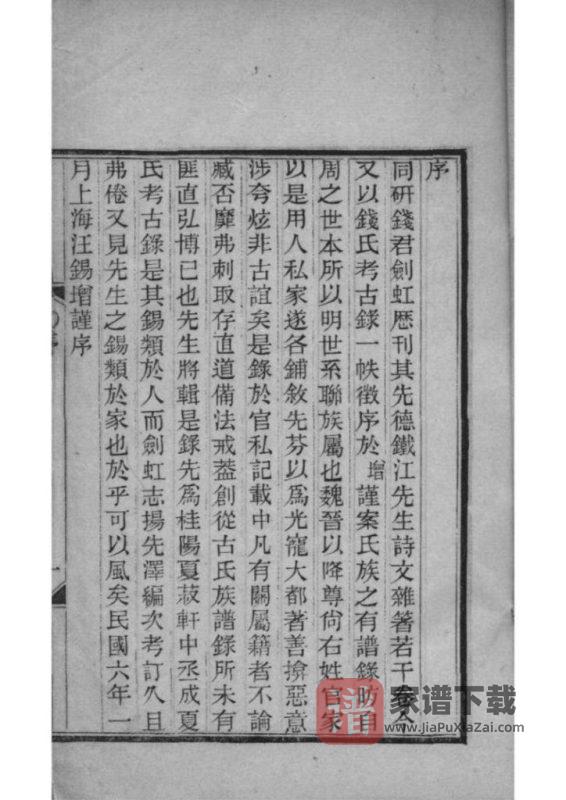 序
同研錢君劍虹歷刊其先德鐵江先生詩文雜箸若干卷今
又以錢氏考古錄一帙徵序於增謹案氏族之有譜錄昉自
周之世本所以明世系聯族屬也魏晉以降尊尙右姓官家
以是用人私家遂各鋪敘先芬以爲光寵大都著善揜惡意
涉夸炫非古誼矣是錄於官私記載中凡有關屬籍者不論
臧否靡弗刺取存直道備法戒葢創從古氏族譜錄所未有
匪直弘博已也先生將輯是錄先爲桂陽夏菽軒中丞成夏
氏考古錄是其錫類於人而劍虹志揚先澤編次考訂久且
弗倦又見先生之錫類於家也於乎可以風矣民國六年一
月上海汪錫增謹序
家谱下载
www.JiaPuXiaZai.com
譜